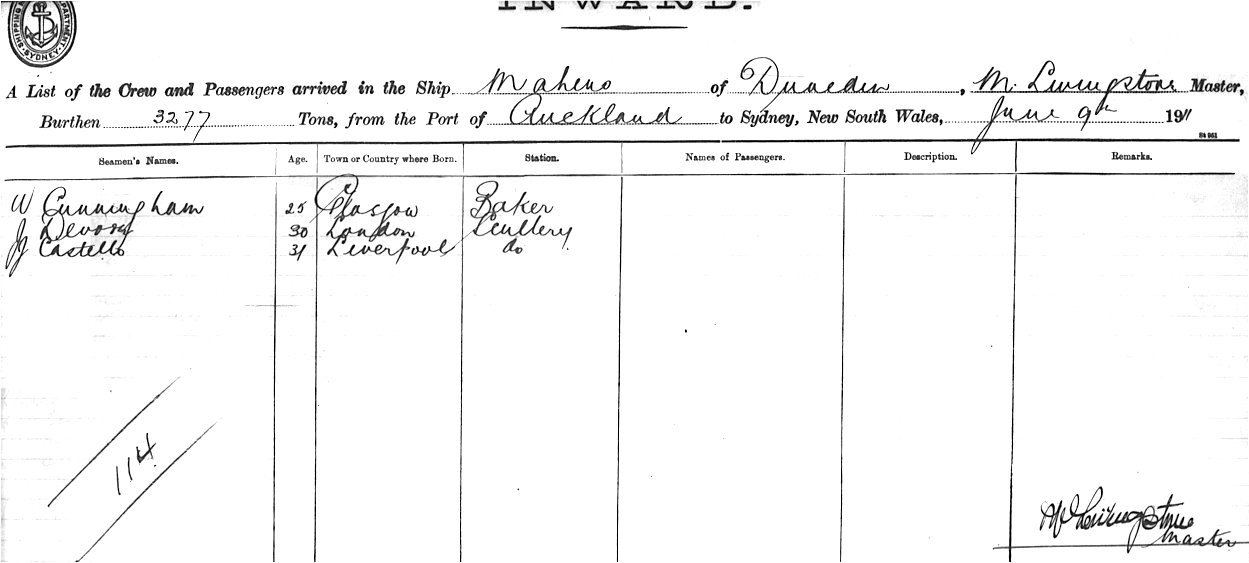 INWARD.
SHIPPING DEPARTMENT SYDNEY
A List of the Crew and Passengers arrived in the Ship Maheno of Dunedin, M. Livingstone Master,
Burthen 3277 Tons, from the Port of Auckland to Sydney, New South Wales, June 9th 1911
84 951
Seamen's Names. Age. Town or Country where Born. Station. Names of Passengers. Description. Remarks.
W Cunningham 25 Glasgow Baker
J Devory 30 London Scullery
J Castello 31 Liverpool do
114
M Livingstone
Master